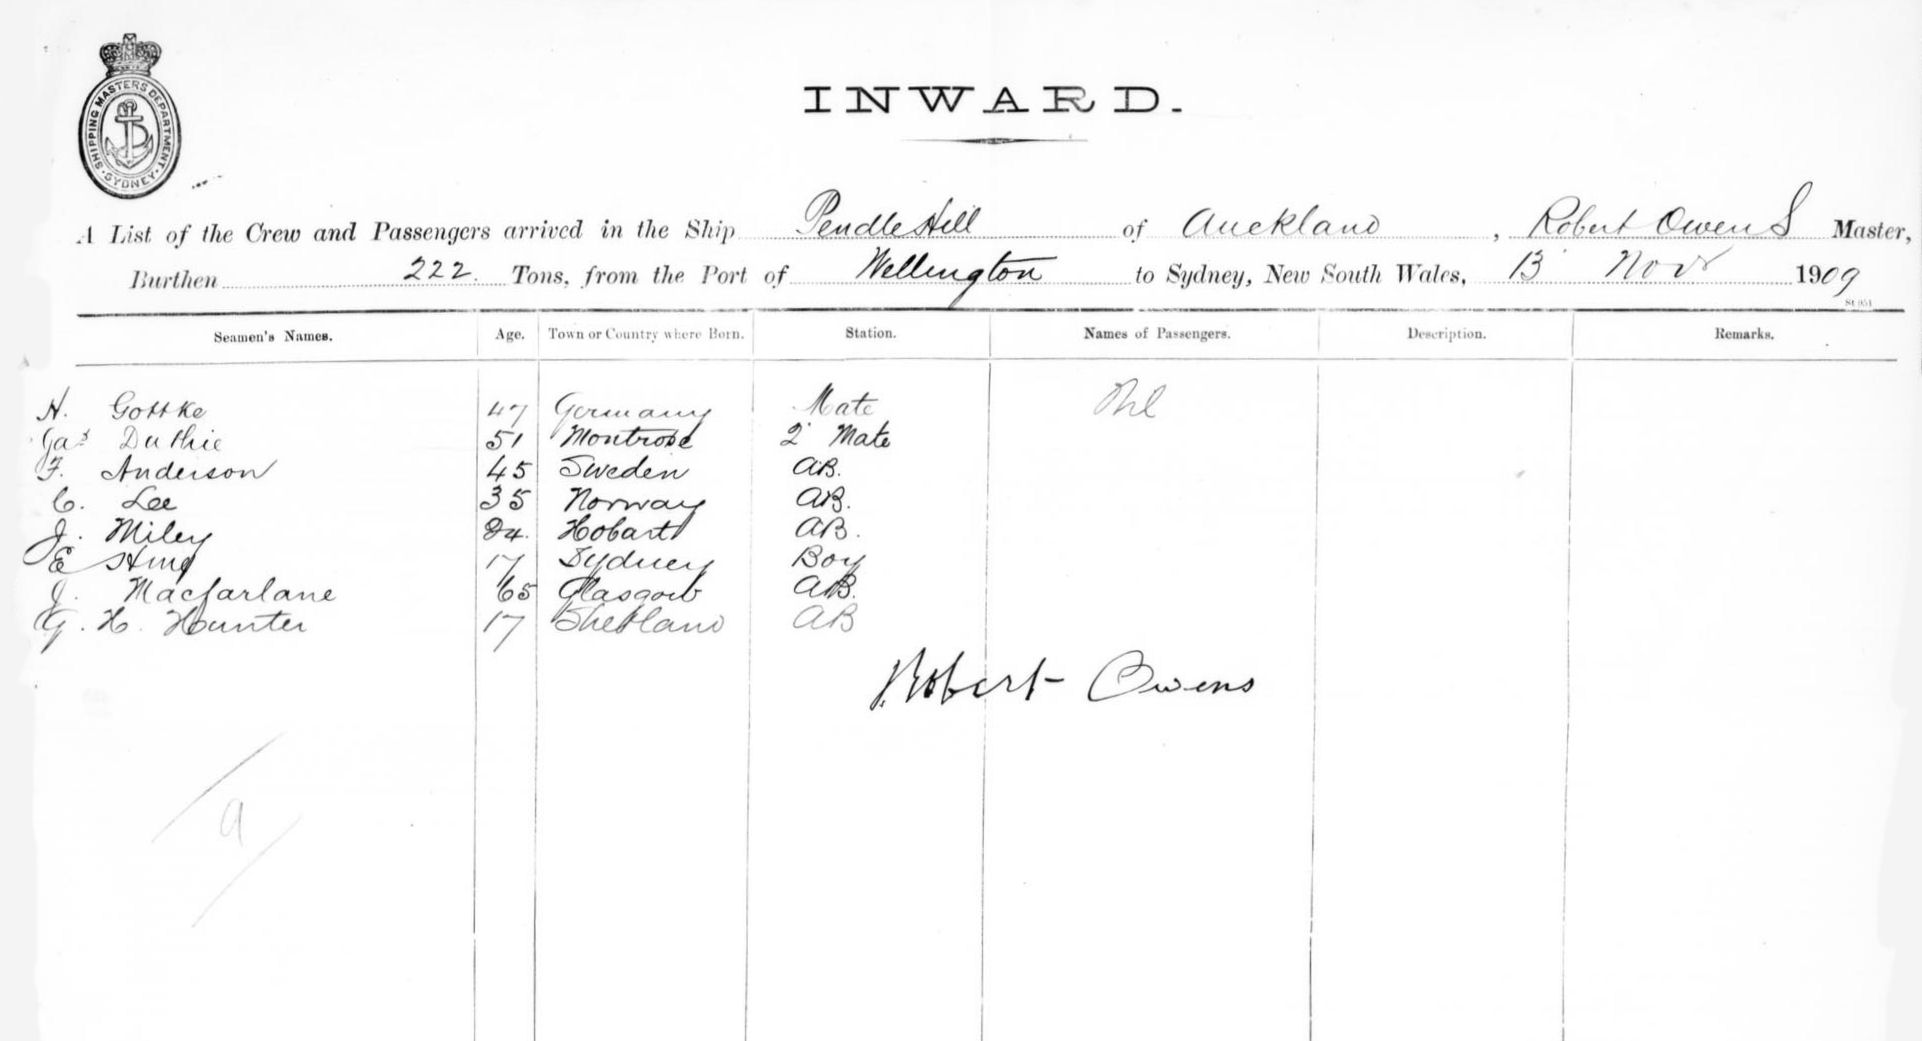 SHIPPING MASTERS DEPARTMENT
SYDNEY
INWARD.
A List of the Crew and Passengers arrived in the Ship Pendle Hill of Auckland, Robert Owens Master,
Burthen 222. Tons, from the Port of Wellington to Sydney, New South Wales, 13 Novr 1909
St 951
Seamen's Names. Age. Town or Country where Born. Station. Names of Passengers. Description. Remarks.
H. Gottke 47 Germany Mate
Jas Duthie 51 Montrose 2 Mate
F. Anderson 45 Sweden AB.
C. Lee 35 Norway AB.
J. Miley 24. Hobart AB.
E 17 Sydney Boy
J. Macfarlane 65 Glasgow AB.
G. H. Hunter 17 Shetland AB
Robert Owens
9